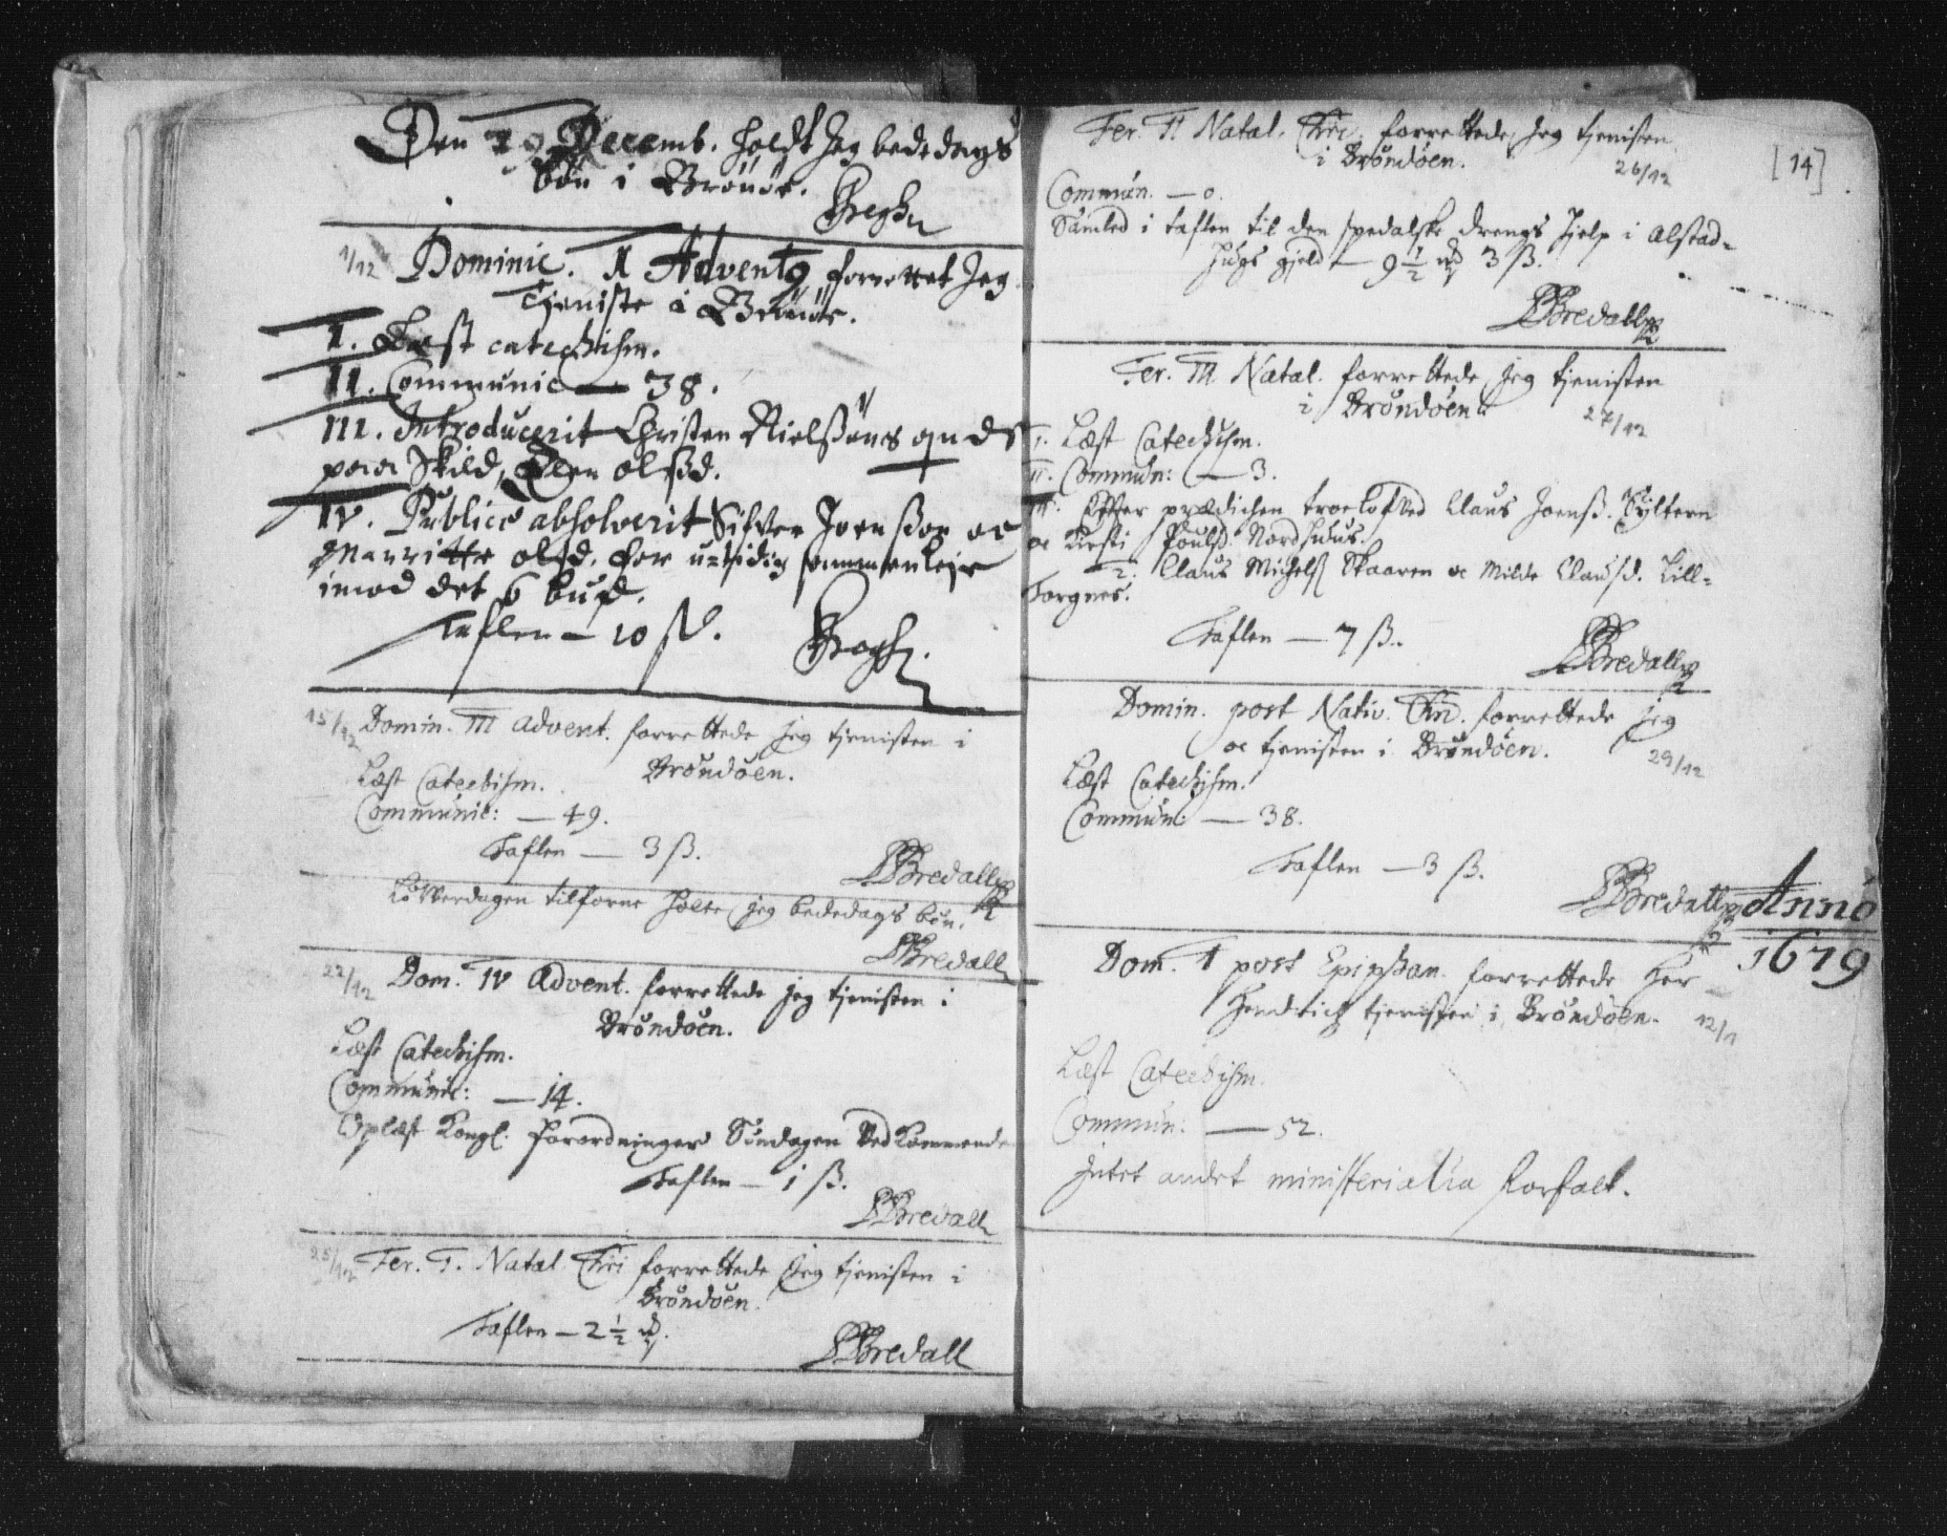 Den Decemb. holdt Jeg bededags
bøn i Brønøe.
1/12 Dominic. I Advent9 forrettet Jeg
Tjeniste i Brønøe.
I. Læst catechism.
II. Communic — 38.
III. Introducerit Christen Nielsøns qinds
paa Skild, Ellen olsd.
IV. Publicè absolverit Sifver Joensøn oc
Marritte olsd. for utidig sammenleje
imod det 6 bud.
Taflen — 10 ß.
15/12 Domin. III Advent. forrettede jeg tjenisten i
Brøndøen.
Læst Catechism.
Communic: — 49.
Taflen — 3 ß.
PBredall
Løfverdagen tilforne holte jeg bededags bøn.
PBredall
22/12 Dom. IV Advent. forrettede jeg tjenisten i
Brøndøen.
Læst Catechism.
Communic: — 14.
Oplæst Kongl. forordninger Søndagen Vedkommende
Taflen — 1 ß.
PBredall
25/12 Fer. I. Natal Chri forrettede Jeg tjenisten i
Brøndøen.
Taflen — 2 1/2
PBredall
[14]
Fer. II Natal. Chri. forrettede Jeg tjenisten
i Brøndøen.
26/12
Commun. — 0.
Samled i taflen til den spedalske drengs hjelp i Alstad-
hugs gjeld — 9 1/2 3 ß.
PBredall
Fer. III Natal. forrettede jeg tjenisten
i Brøndøen
27/12
I. Læst Catechism.
II. Commun: — 3.
III. Efter prædichen troelofved Claus Joensß. Sÿltern
oc Kirsti Poulsd. Nordhuus.
2. Claus Michelsß Skaaren oc Milde Clausd. Lill-
Torgnes.
Taflen — 7 ß.
PBredall
Domin. post Nativ. Chri. forrettede jeg
oc tjenisten i Brøndøen.
29/12
Læst Catechism.
Commun: — 38.
Taflen — 3 ß.
PBredall
Anno
1679
Dom. I post Epiphan. forrettede Her
Hendrich tjenisten i Brøndøen.
12/1
Læst Catechism.
Commun: — 52.
Intet andet ministerialia forfalt.